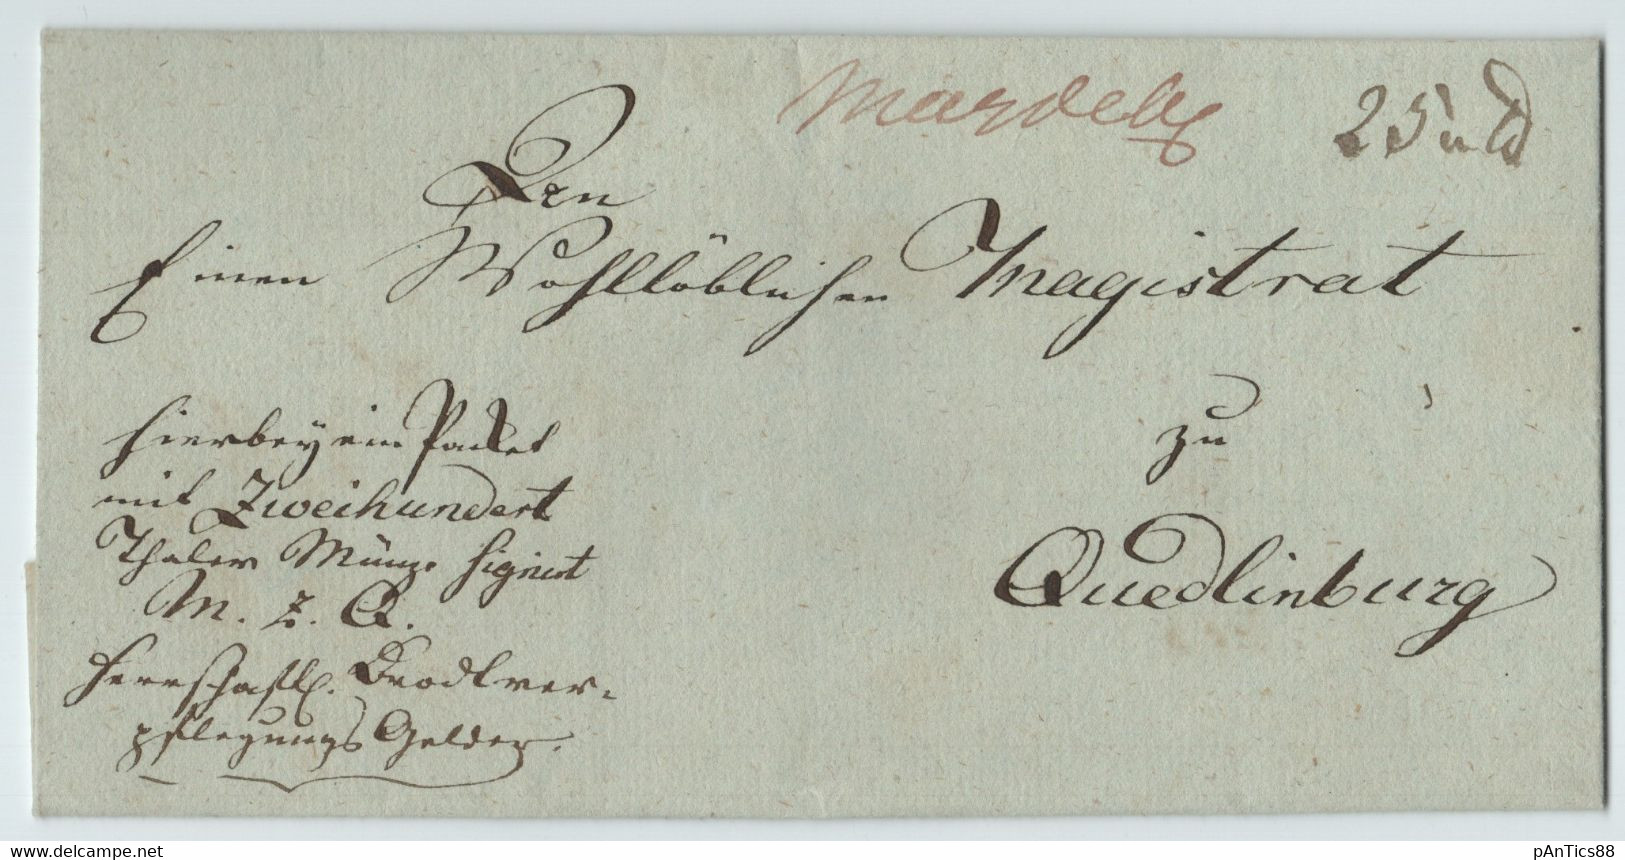 Magdebg
An
Einen Wohllöblichen Magistrat
zu
Quedlinburg
hierbey ein Packet
mit Zweihundert
Thaler Münze signirt
M. z. Q.
Herrschaftl. Brodtver-
pflegungs Gelder.
www.delcampe.net
pAnTics88